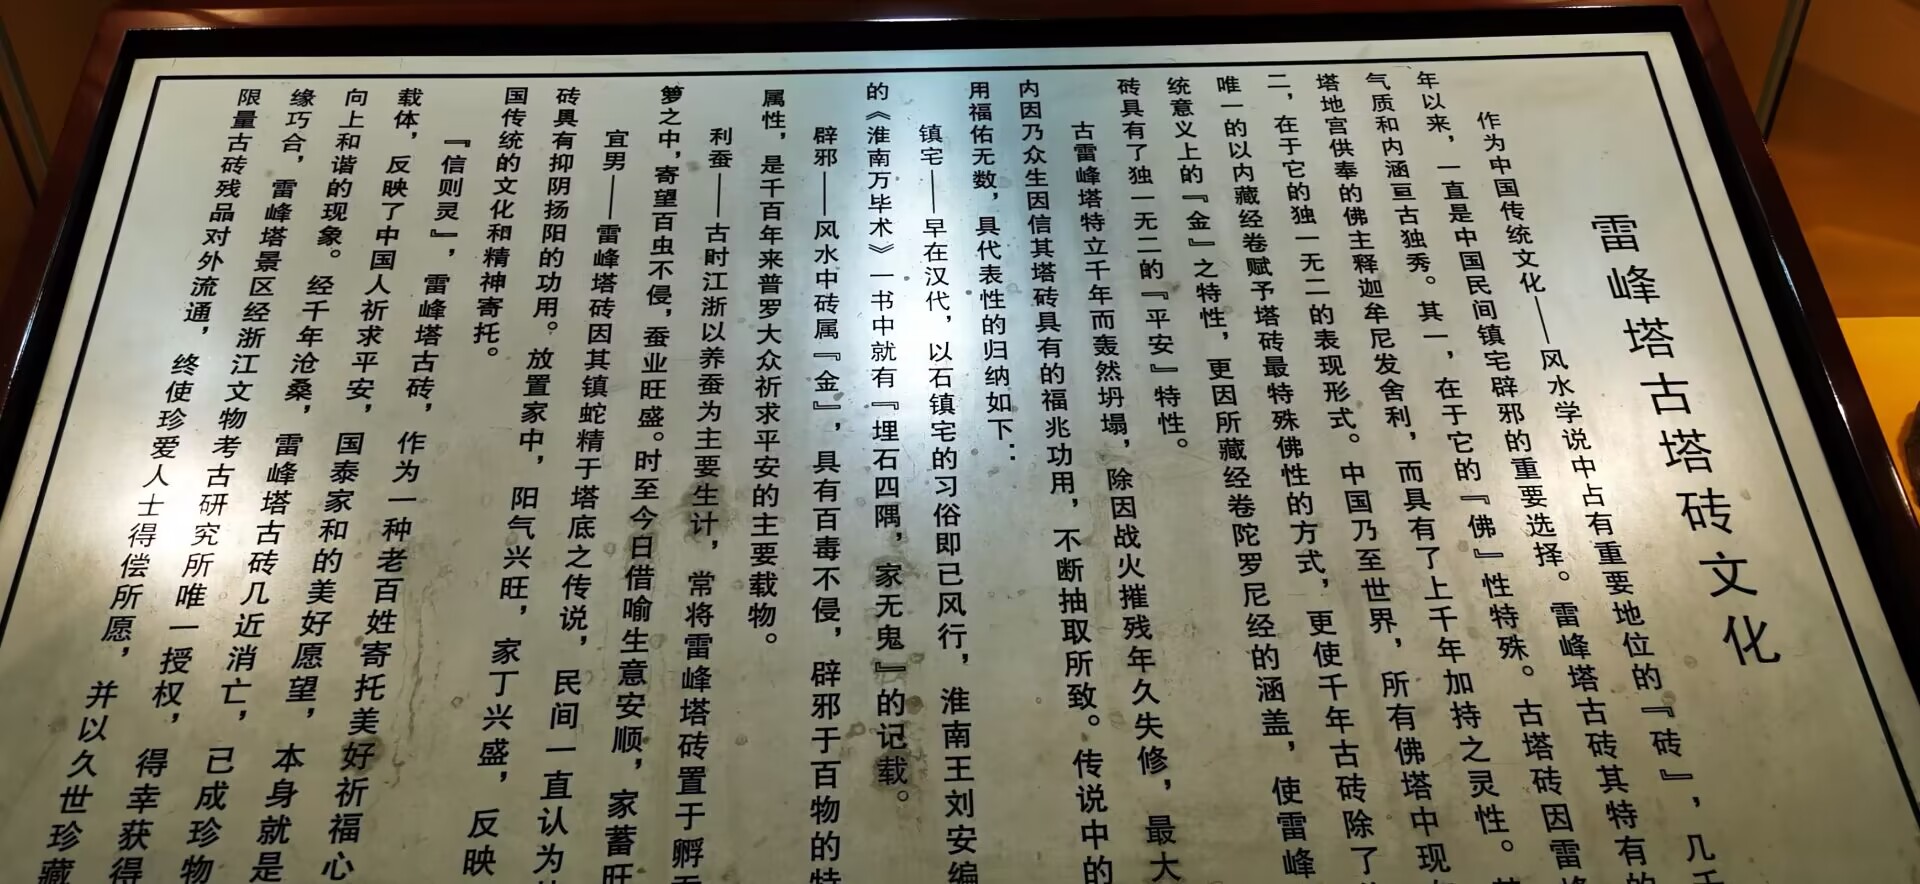 雷峰塔古塔砖文化
作为中国传统文化——风水学说中占有重要地位的『砖』，几千
年以来，一直是中国民间镇宅辟邪的重要选择。雷峰塔古砖其特有的
气质和内涵亘古独秀。其一，在于它的『佛』性特殊。古塔砖因雷峰
塔地宫供奉的佛主释迦牟尼发舍利，而具有了上千年加持之灵性。其
二，在于它的独一无二的表现形式。中国乃至世界，所有佛塔中现
唯一的以内藏经卷赋予塔砖最特殊佛性的方式，更使千年古砖除了
统意义上的『金』之特性，更因所藏经卷陀罗尼经的涵盖，使雷峰
砖具有了独一无二的『平安』特性。
古雷峰塔特立千年而轰然坍塌，除因战火摧残年久失修，最大
内因乃众生因信其塔砖具有的福兆功用，不断抽取所致。传说中的
用福佑无数，具代表性的归纳如下：
镇宅——早在汉代，以石镇宅的习俗即已风行，淮南王刘安编
的《淮南万毕术》一书中就有『埋石四隅，家无鬼』的记载。
辟邪——风水中砖属『金』，具有百毒不侵，辟邪于百物的特
属性，是千百年来普罗大众祈求平安的主要载物。
利蚕——古时江浙以养蚕为主要生计，常将雷峰塔砖置于孵
箩之中，寄望百虫不侵，蚕业旺盛。时至今日借喻生意安顺，家蓄旺
宜男——雷峰塔砖因其镇蛇精于塔底之传说，民间一直认为
砖具有抑阴扬阳的功用。放置家中，阳气兴旺，家丁兴盛，反映
国传统的文化和精神寄托。
『信则灵』，雷峰塔古砖，作为一种老百姓寄托美好祈福心
载体，反映了中国人祈求平安，国泰家和的美好愿望，本身就是
向上和谐的现象。经千年沧桑，雷峰塔古砖几近消亡，已成珍物
缘巧合，雷峰塔景区经浙江文物考古研究所唯一授权，得幸获得
限量古砖残品对外流通，终使珍爱人士得偿所愿，并以久世珍藏